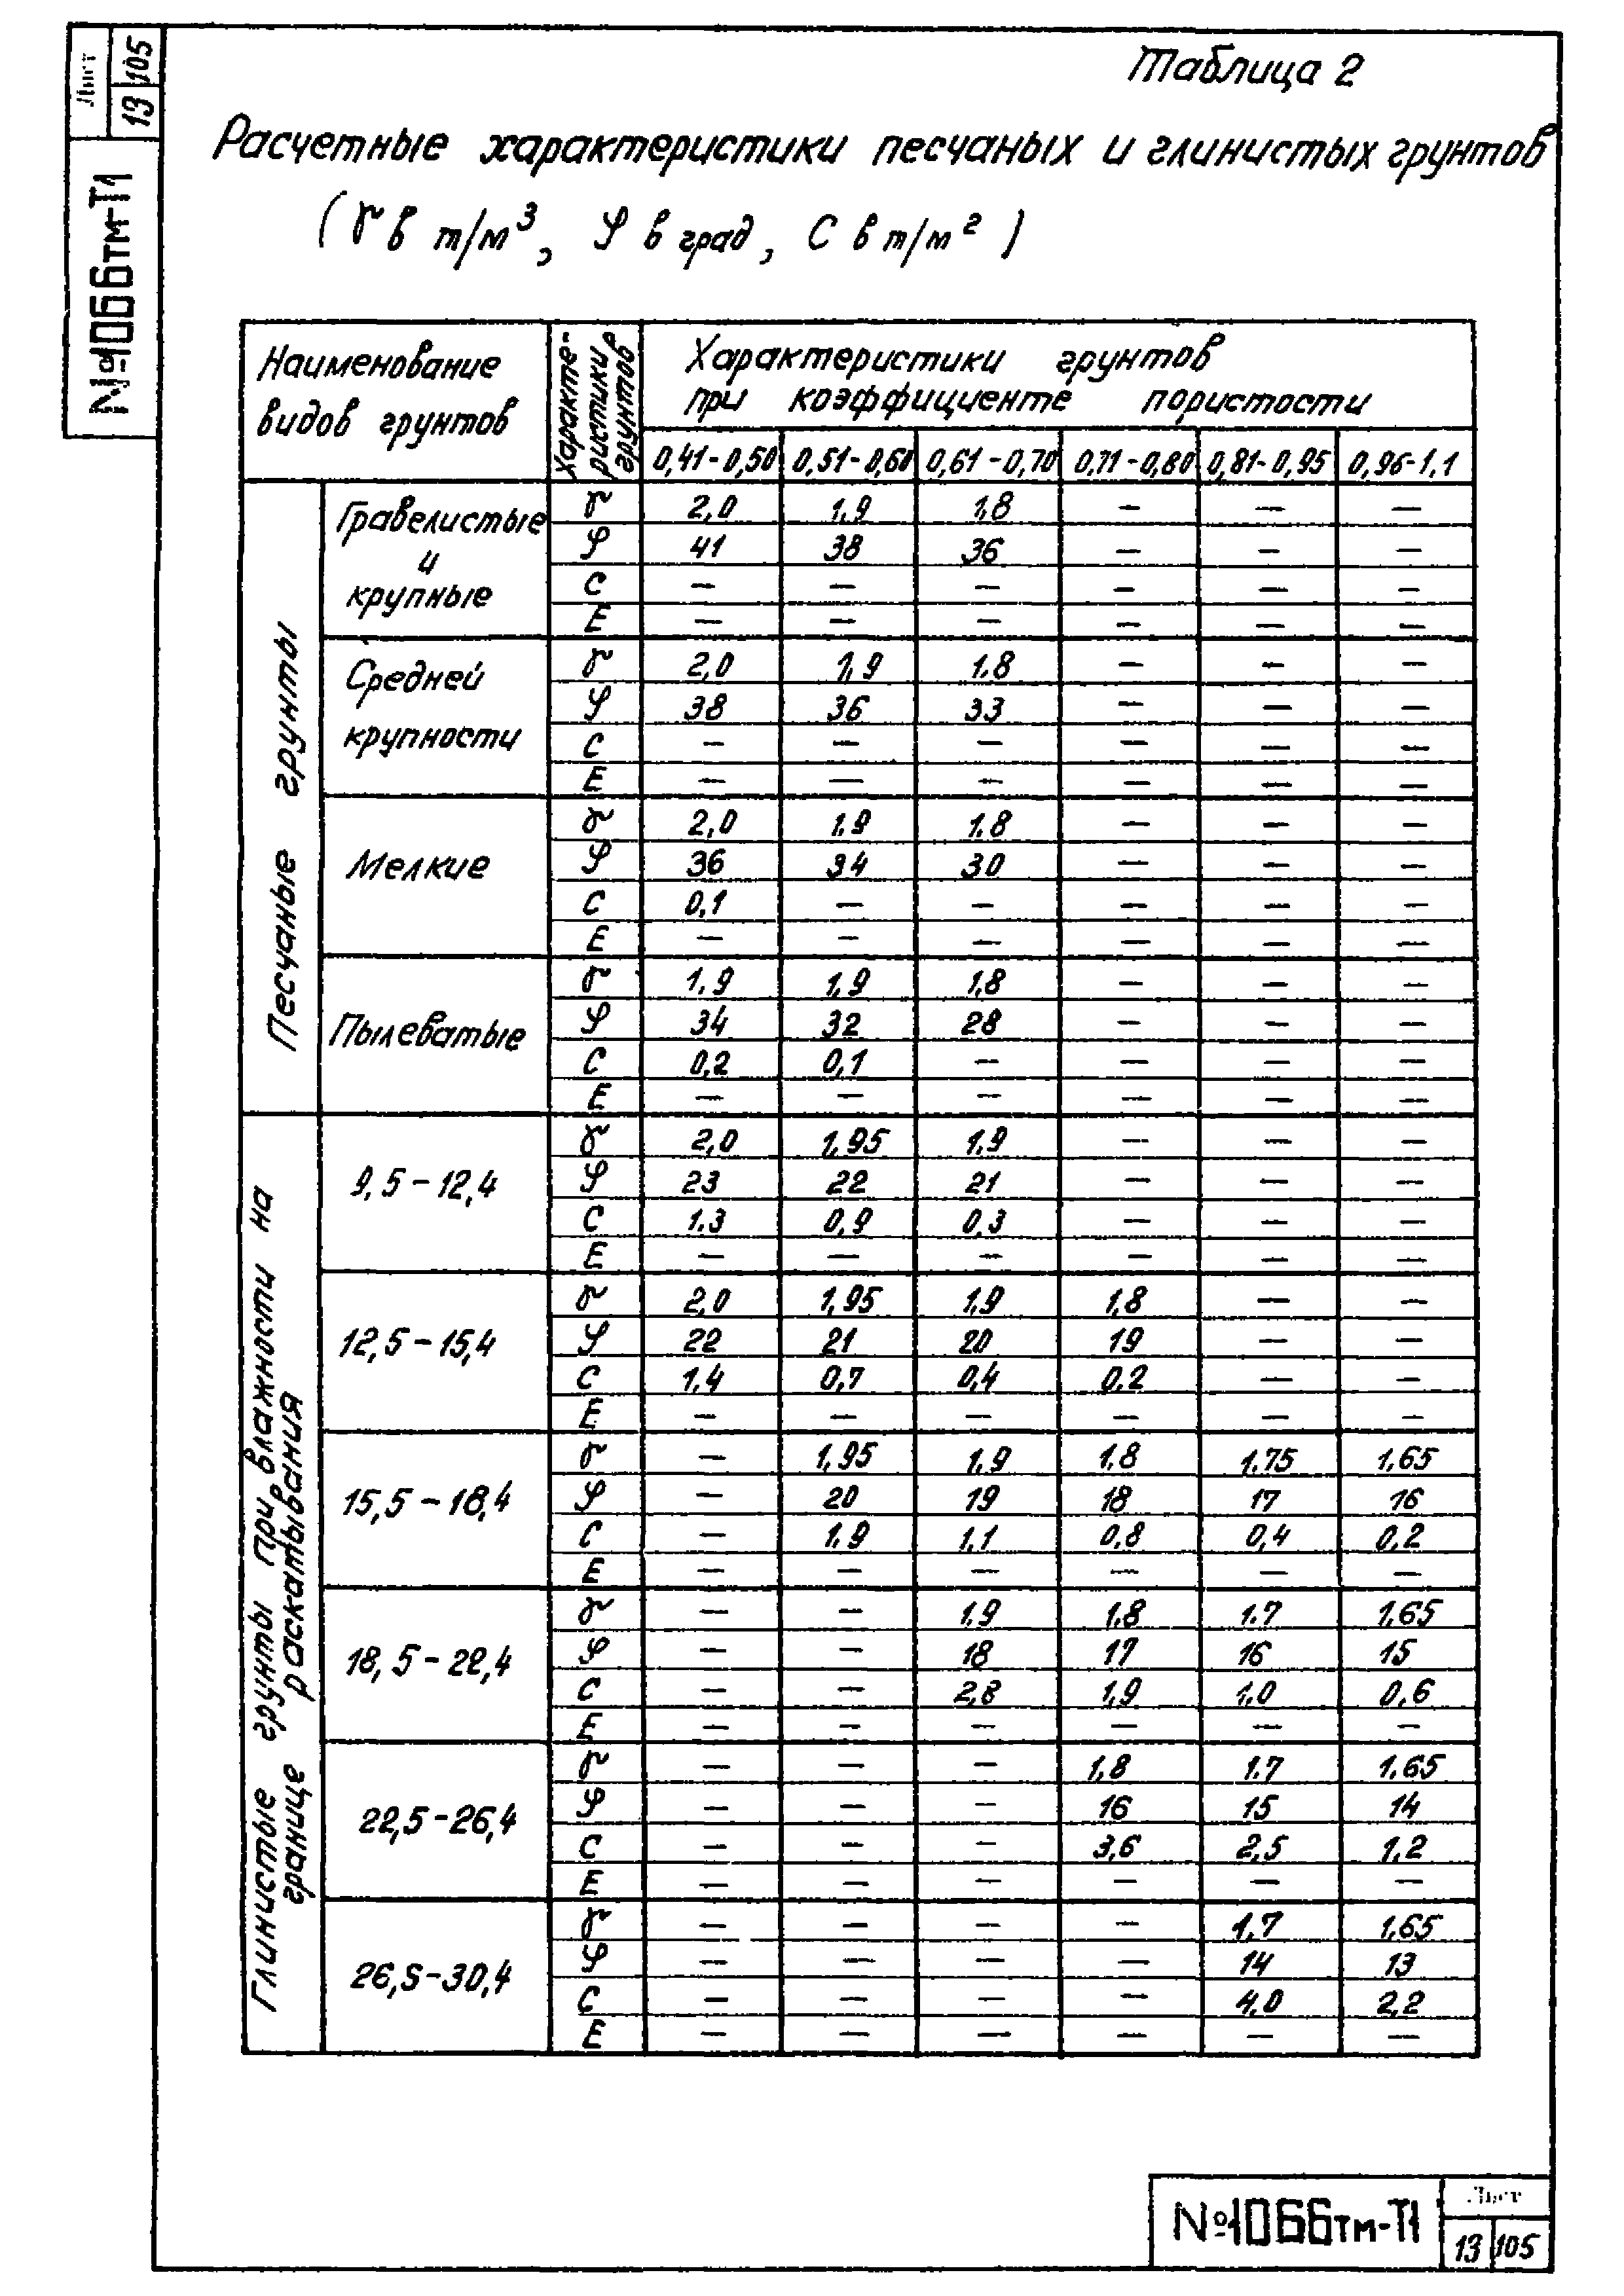 Лист
13 105
№1066тм-Т1
Таблица 2
Расчетные характеристики песчаных и глинистых грунтов
( γ в т/м³, φ в град, С в т/м² )
Наименование видов грунтов
Характе-ристики грунтов
Характеристики грунтов при коэффициенте пористости
0,41-0,50 0,51-0,60 0,61-0,70 0,71-0,80 0,81-0,95 0,96-1,1
Песчаные грунты
Гравелистые и крупные
γ 2,0 1,9 1,8 — — —
φ 41 38 36 — — —
С — — — — — —
Е — — — — — —
Средней крупности
γ 2,0 1,9 1.8 — — —
φ 38 36 33 — — —
С — — — — — —
Е — — — — — —
Мелкие
γ 2,0 1.9 1.8 — — —
φ 36 34 30 — — —
С 0,1 — — — — —
Е — — — — — —
Пылеватые
γ 1,9 1,9 1,8 — — —
φ 34 32 28 — — —
С 0,2 0,1 — — — —
Е — — — — — —
Глинистые грунты при влажности на границе раскатывания
9,5-12,4
γ 2,0 1,95 1,9 — — —
φ 23 22 21 — — —
С 1.3 0,9 0,3 — — —
Е — — — — — —
12,5-15,4
γ 2,0 1,95 1,9 1,8 — —
φ 22 21 20 19 — —
С 1,4 0,7 0,4 0,2 — —
Е — — — — — —
15,5-18,4
γ — 1,95 1,9 1,8 1.75 1,65
φ — 20 19 18 17 16
С — 1,9 1,1 0,8 0,4 0,2
Е — — — — — —
18,5-22,4
γ — — 1,9 1.8 1.7 1,65
φ — — 18 17 16 15
С — — 2,8 1,9 1,0 0,6
Е — — — — — —
22,5-26,4
γ — — — 1,8 1.7 1.65
φ — — — 16 15 14
С — — — 3,6 2,5 1,2
Е — — — — — —
26,5-30,4
γ — — — — 1,7 1,65
φ — — — — 14 13
С — — — — 4,0 2,2
Е — — — — — —
№1066тм-Т1
Лист
13 105